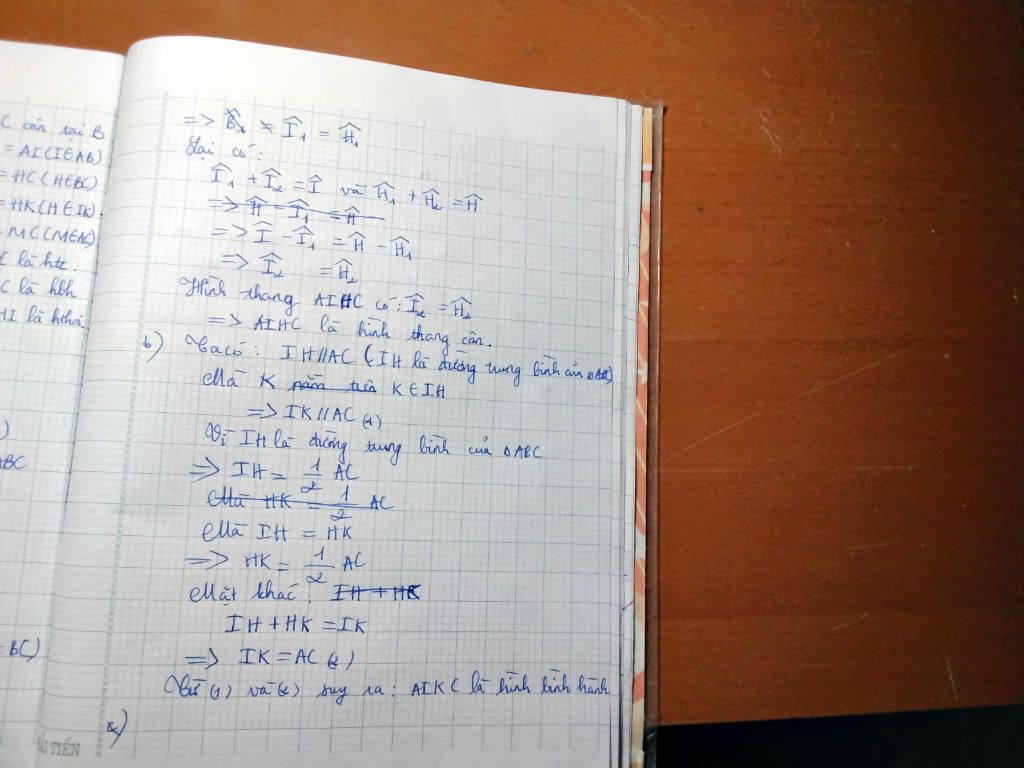 C cân tại B
= AI (I∈AB)
= HC (H∈BC)
= HK (H∈IK).
= MC (M∈AC)
C là htc.
C là hbh
HI là hthoi
)
ABC
= BC)
ẢI TIẾN
=> Î₁ = Ĥ₁
Lại có:
Î₁ + Î₂ = Î và Ĥ₁ + Ĥ₂ = Ĥ
=> Ĥ - Î₁ = Ĥ
=> Î - Î₁ = Ĥ - Ĥ₁
=> Î₂ = Ĥ₂
Hình thang AIHC có: Î₂ = Ĥ₂
=> AIHC là hình thang cân.
b) Ta có: IH//AC (IH là đường trung bình của ΔABC)
Mà K nằm trên K∈IH
=> IK//AC (1)
Vì IH là đường trung bình của ΔABC
=> IH = 1/2 AC
Mà HK = 1/2 AC
Mà IH = HK
=> HK = 1/2 AC
Mặt khác: IH + HK
IH + HK = IK
=> IK = AC (2)
Từ (1) và (2) suy ra: AIKC là hình bình hành
c)